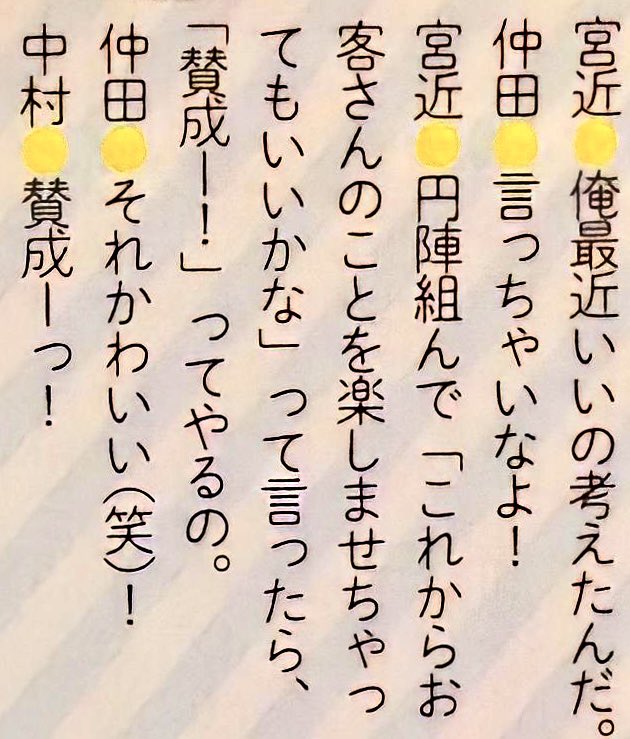 宮近●俺最近いいの考えたんだ。
仲田●言っちゃいなよ！
宮近●円陣組んで「これからお
客さんのことを楽しませちゃっ
てもいいかな」って言ったら、
「賛成ー！」ってやるの。
仲田●それかわいい(笑)！
中村●賛成ーっ！